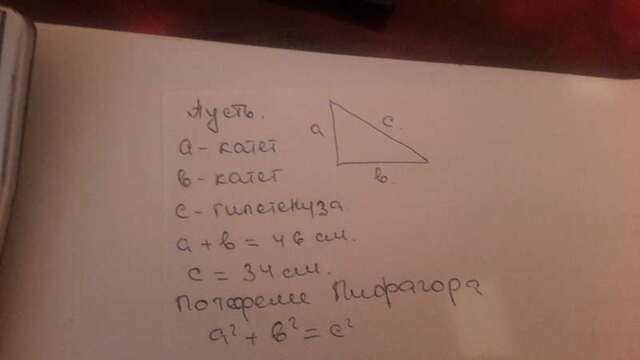 Пусть.
а - катет
в - катет
с - гипотенуза
а + в = 46 см.
с = 34 см.
По теореме Пифагора
а² + в² = с²
а
с
в